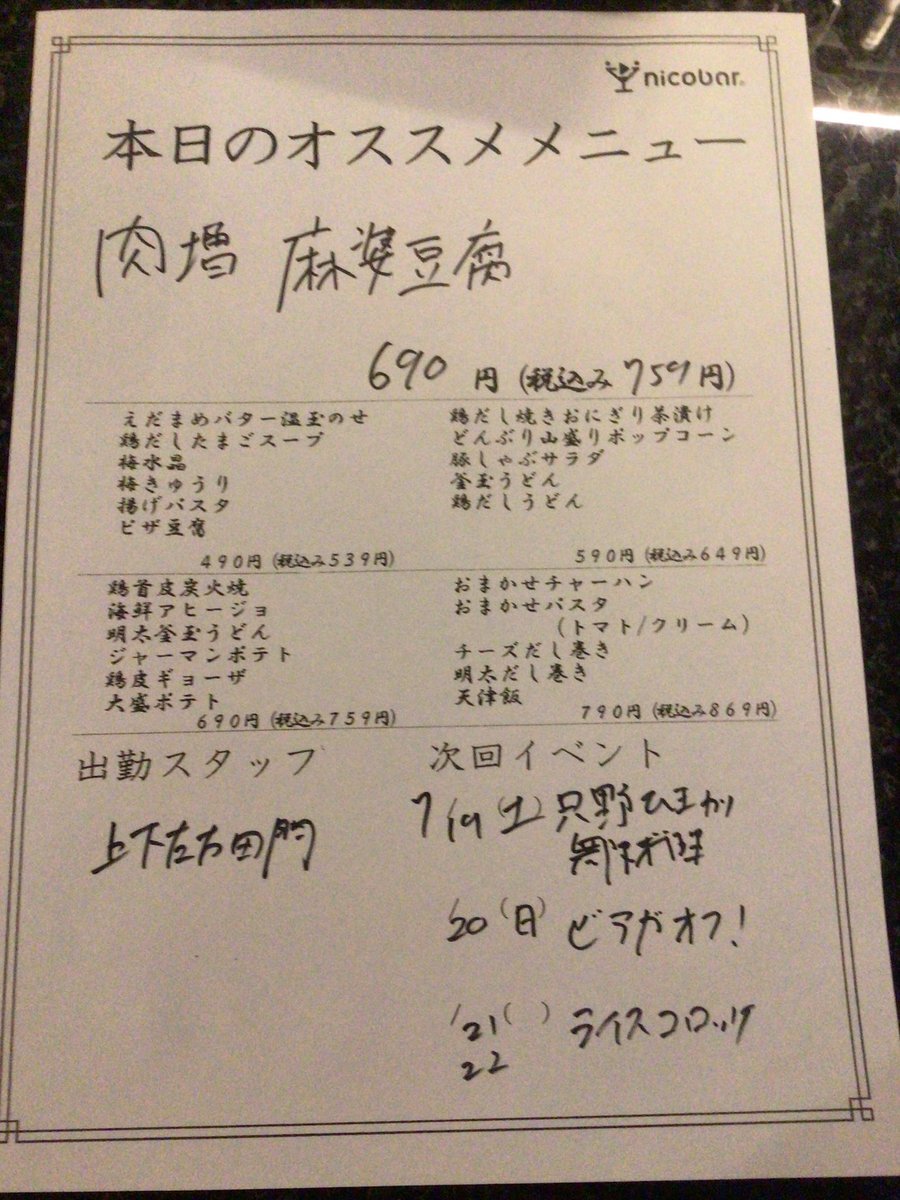 nicobar
本日のオススメメニュー
肉増 麻婆豆腐
690 円 (税込み 759円)
えだまめバター温玉のせ
鶏だしたまごスープ
梅水晶
梅きゅうり
揚げパスタ
ピザ豆腐
490円 (税込み539円)
鶏だし焼きおにぎり茶漬け
どんぶり山盛りポップコーン
豚しゃぶサラダ
釜玉うどん
鶏だしうどん
590円 (税込み649円)
鶏首皮炭火焼
海鮮アヒージョ
明太釜玉うどん
ジャーマンポテト
鶏皮ギョーザ
大盛ポテト
690円 (税込み759円)
おまかせチャーハン
おまかせパスタ
(トマト/クリーム)
チーズだし巻き
明太だし巻き
天津飯
790円 (税込み869円)
出勤スタッフ
上下左右田門
次回イベント
7/19 (土) 只野
/20 (日) ビアガオフ!
/21 ( ) ライスコロッケ
22